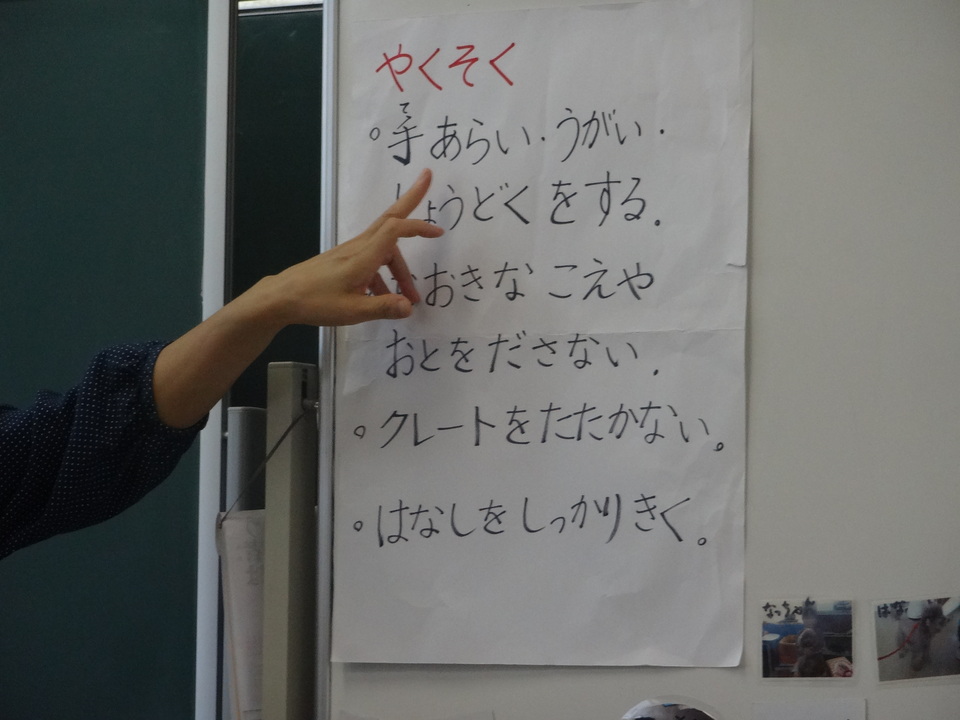 やくそく
て
。手あらい・うがい・
しょうどくをする。
おおきな こえや
おとをださない。
。クレートをたたかない。
。はなしをしっかりきく。
なっちゃん
はな